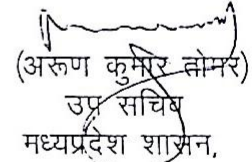 (अरूण कुमार तोमर)
उप सचिव
मध्यप्रदेश शासन,